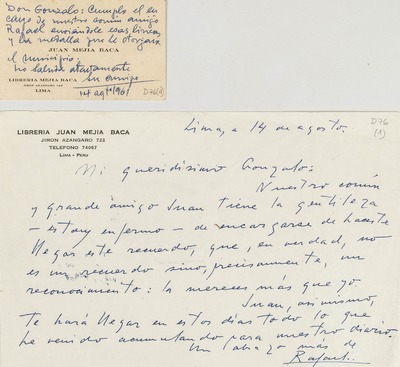 Don Gonzalo: Cumplo el en
cargo de nuestro común amigo
Rafael enviándole esas líneas
y la medalla que le otorgara
el municipio.
JUAN MEJIA BACA
Lo saluda atentamente
LIBRERIA JUAN MEJIA BACA
su amigo
JIRON AZANGARO 722
LIMA
14 agto 1961
D76(2)
D76
(1)
LIBRERIA JUAN MEJIA BACA
JIRON AZANGARO 722
TELEFONO 74067
LIMA - PERU
Lima, a 14 de agosto.
Mi queridísimo Gonzalo:
Nuestro común
y grande amigo Juan tiene la gentileza
- estoy enfermo - de encargarse de hacerte
llegar este recuerdo, que, en verdad, no
es un recuerdo sino, precisamente, un
reconocimiento: la mereces más que yo.
Juan, asimismo,
te hará llegar en estos días todo lo que
he venido acumulando para nuestro diario.
Un abrazo más de
Rafael.